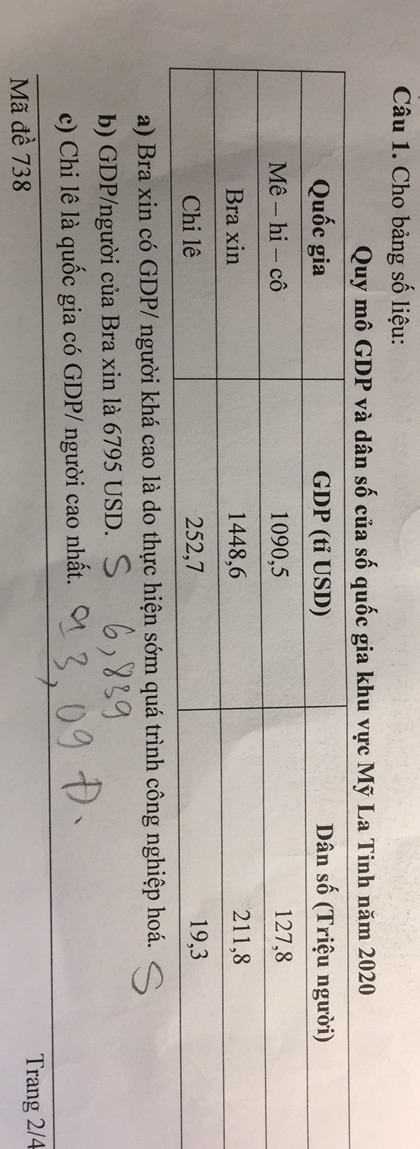 Câu 1. Cho bảng số liệu:
Quy mô GDP và dân số của số quốc gia khu vực Mỹ La Tinh năm 2020
Quốc gia GDP (tỉ USD) Dân số (Triệu người)
Mê – hi – cô 1090,5 127,8
Bra xin 1448,6 211,8
Chi lê 252,7 19,3
a) Bra xin có GDP/ người khá cao là do thực hiện sớm quá trình công nghiệp hoá. S
b) GDP/người của Bra xin là 6795 USD. S 6,839
c) Chi lê là quốc gia có GDP/ người cao nhất. 13,09 Đ.
Mã đề 738 Trang 2/4